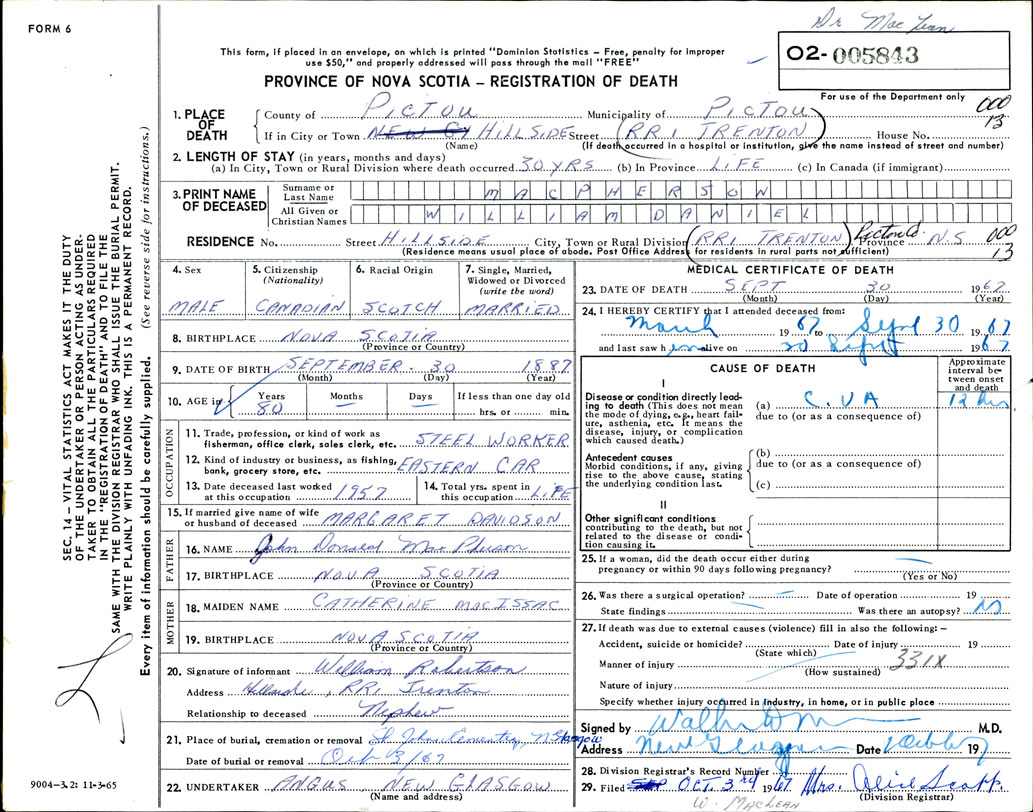 FORM 6
Dr Mac Lean
This form, if placed in an envelope, on which is printed "Dominion Statistics – Free, penalty for improper
use $50," and properly addressed will pass through the mail "FREE"
02-005843
For use of the Department only
PROVINCE OF NOVA SCOTIA – REGISTRATION OF DEATH
000
13
1. PLACE OF DEATH
County of PICTOU Municipality of PICTOU
If in City or Town HILLSIDE Street (RR1 TRENTON) House No.
(Name) (If death occurred in a hospital or institution, give the name instead of street and number)
2. LENGTH OF STAY (in years, months and days)
(a) In City, Town or Rural Division where death occurred 30 YRS (b) In Province LIFE (c) In Canada (if immigrant)
3. PRINT NAME OF DECEASED
Surname or Last Name MACPHERSON
All Given or Christian Names WILLIAM DANIEL
RESIDENCE No. Street HILLSIDE City, Town or Rural Division (RR1 TRENTON) Pictou Co. Province N.S 000
13
(Residence means usual place of abode. Post Office Address for residents in rural parts not sufficient)
4. Sex MALE
5. Citizenship (Nationality) CANADIAN
6. Racial Origin SCOTCH
7. Single, Married, Widowed or Divorced (write the word) MARRIED
8. BIRTHPLACE NOVA SCOTIA
(Province or Country)
9. DATE OF BIRTH SEPTEMBER 30 1887
(Month) (Day) (Year)
10. AGE in Years 80 Months – Days – If less than one day old hrs. or min.
OCCUPATION
11. Trade, profession, or kind of work as
fisherman, office clerk, sales clerk, etc. STEEL WORKER
12. Kind of industry or business, as fishing,
bank, grocery store, etc. EASTERN CAR
13. Date deceased last worked
at this occupation 1957
14. Total yrs. spent in
this occupation LIFE
15. If married give name of wife
or husband of deceased MARGARET DAVIDSON
FATHER
16. NAME John Donald MacPherson
17. BIRTHPLACE NOVA SCOTIA
(Province or Country)
MOTHER
18. MAIDEN NAME CATHERINE MACISSAC
19. BIRTHPLACE NOVA SCOTIA
(Province or Country)
20. Signature of informant William Robertson
Address Hillside, RR1 Trenton
Relationship to deceased Nephew
21. Place of burial, cremation or removal St. John Cemetery, N. Glasgow
Date of burial or removal Oct 3/67
22. UNDERTAKER ANGUS NEW GLASGOW
(Name and address)
MEDICAL CERTIFICATE OF DEATH
23. DATE OF DEATH SEPT 30 1967
(Month) (Day) (Year)
24. I HEREBY CERTIFY that I attended deceased from:
March 1967 to Sept 30 1967
and last saw him alive on 30 Sept 1967
CAUSE OF DEATH
Approximate interval between onset and death
I
Disease or condition directly leading to death (This does not mean the mode of dying, e.g., heart failure, asthenia, etc. It means the disease, injury, or complication which caused death.)
(a) C.V.A 12 hrs
due to (or as a consequence of)
Antecedent causes
Morbid conditions, if any, giving rise to the above cause, stating the underlying condition last.
(b)
due to (or as a consequence of)
(c)
II
Other significant conditions
contributing to the death, but not related to the disease or condition causing it.
25. If a woman, did the death occur either during
pregnancy or within 90 days following pregnancy?
(Yes or No)
26. Was there a surgical operation? – Date of operation – 19
State findings – Was there an autopsy? No
27. If death was due to external causes (violence) fill in also the following:–
Accident, suicide or homicide? Date of injury 19
(State which)
Manner of injury 331X
(How sustained)
Nature of injury
Specify whether injury occurred in industry, in home, or in public place
Signed by M.D.
Address New Glasgow Date 1967
28. Division Registrar's Record Number
29. Filed OCT. 3rd 1967 Mrs. Alice Scott
(Division Registrar)
W. MACLEAN
SEC. 14 – VITAL STATISTICS ACT MAKES IT THE DUTY
OF THE UNDERTAKER OR PERSON ACTING AS UNDER-
TAKER TO OBTAIN ALL THE PARTICULARS REQUIRED
IN THE "REGISTRATION OF DEATH" AND TO FILE THE
SAME WITH THE DIVISION REGISTRAR WHO SHALL ISSUE THE BURIAL PERMIT.
WRITE PLAINLY WITH UNFADING INK. THIS IS A PERMANENT RECORD.
Every item of information should be carefully supplied. (See reverse side for instructions.)
9004–3.2: 11-3-65